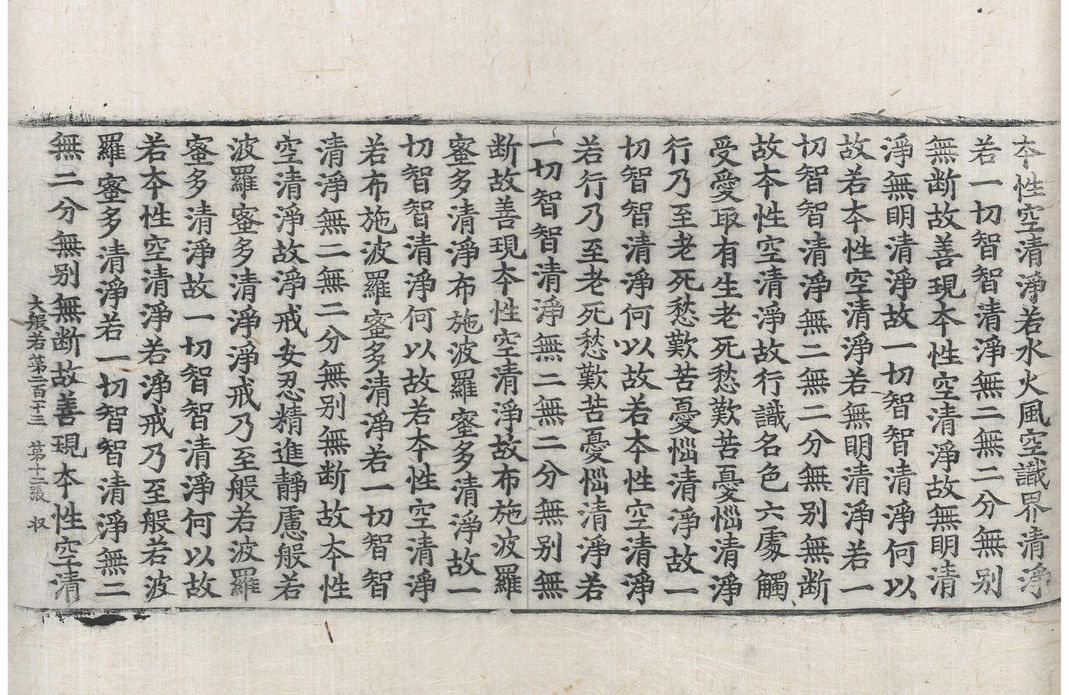 本性空清淨若水火風空識界清淨
若一切智智清淨無二無二分無別
無断故善現本性空清淨故無明清
淨無明清淨故一切智智清淨何以
故若本性空清淨若無明清淨若一
切智智清淨無二無二分無別無断
故本性空清淨故行識名色六處觸
受愛取有生老死愁歎苦憂惱清淨
行乃至老死愁歎苦憂惱清淨故一
切智智清淨何以故若本性空清淨
若行乃至老死愁歎苦憂惱清淨若
一切智智清淨無二無二分無別無
断故善現本性空清淨故布施波羅
蜜多清淨布施波羅蜜多清淨故一
切智智清淨何以故若本性空清淨
若布施波羅蜜多清淨若一切智智
清淨無二無二分無別無断故本性
空清淨故淨戒安忍精進靜慮般若
波羅蜜多清淨淨戒乃至般若波羅
蜜多清淨故一切智智清淨何以故
若本性空清淨若淨戒乃至般若波
羅蜜多清淨若一切智智清淨無二
無二分無別無断故善現本性空清
大般若第二百十三 第十二張 収